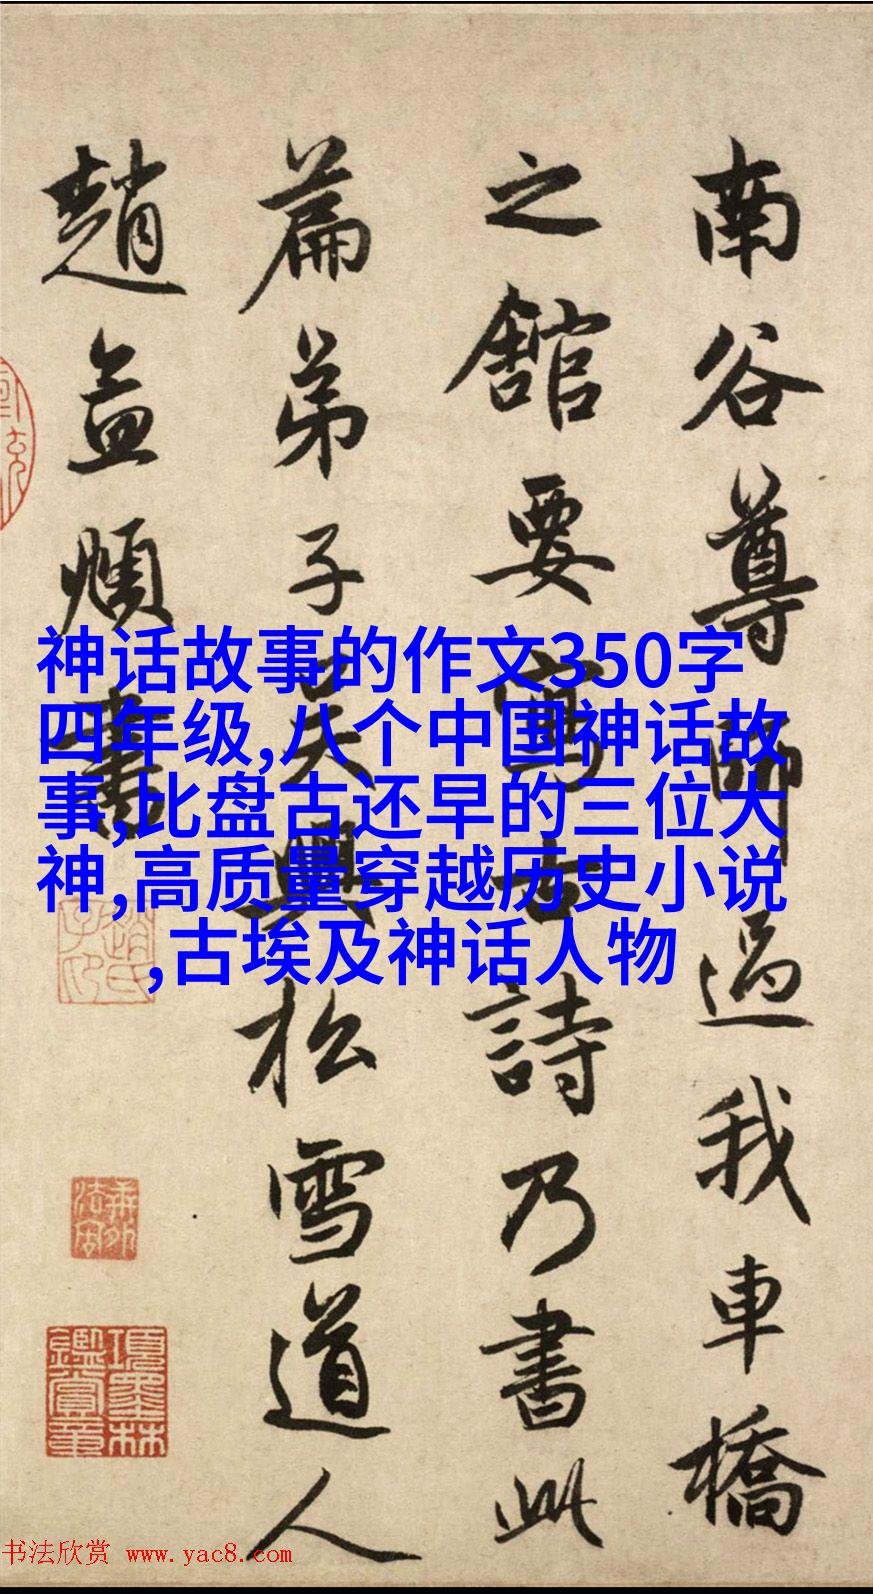 南谷尊師過我車橋
之館要寫古詩乃書此
篇弟子吴興松雪道人
趙孟頫書
神话故事的作文350字
四年级,八个中国神话故
事,比盘古还早的三位大
神,高质量穿越历史小说
,古埃及神话人物
項墨林鑑賞章
书法欣赏 www.yac8.com